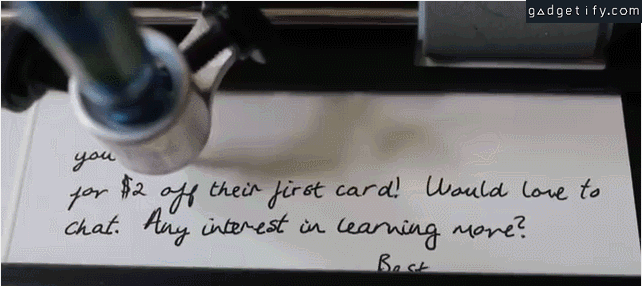 gadgetify.com
you
for $2 off their first card! Would love to
chat. Any interest in learning more?
Best